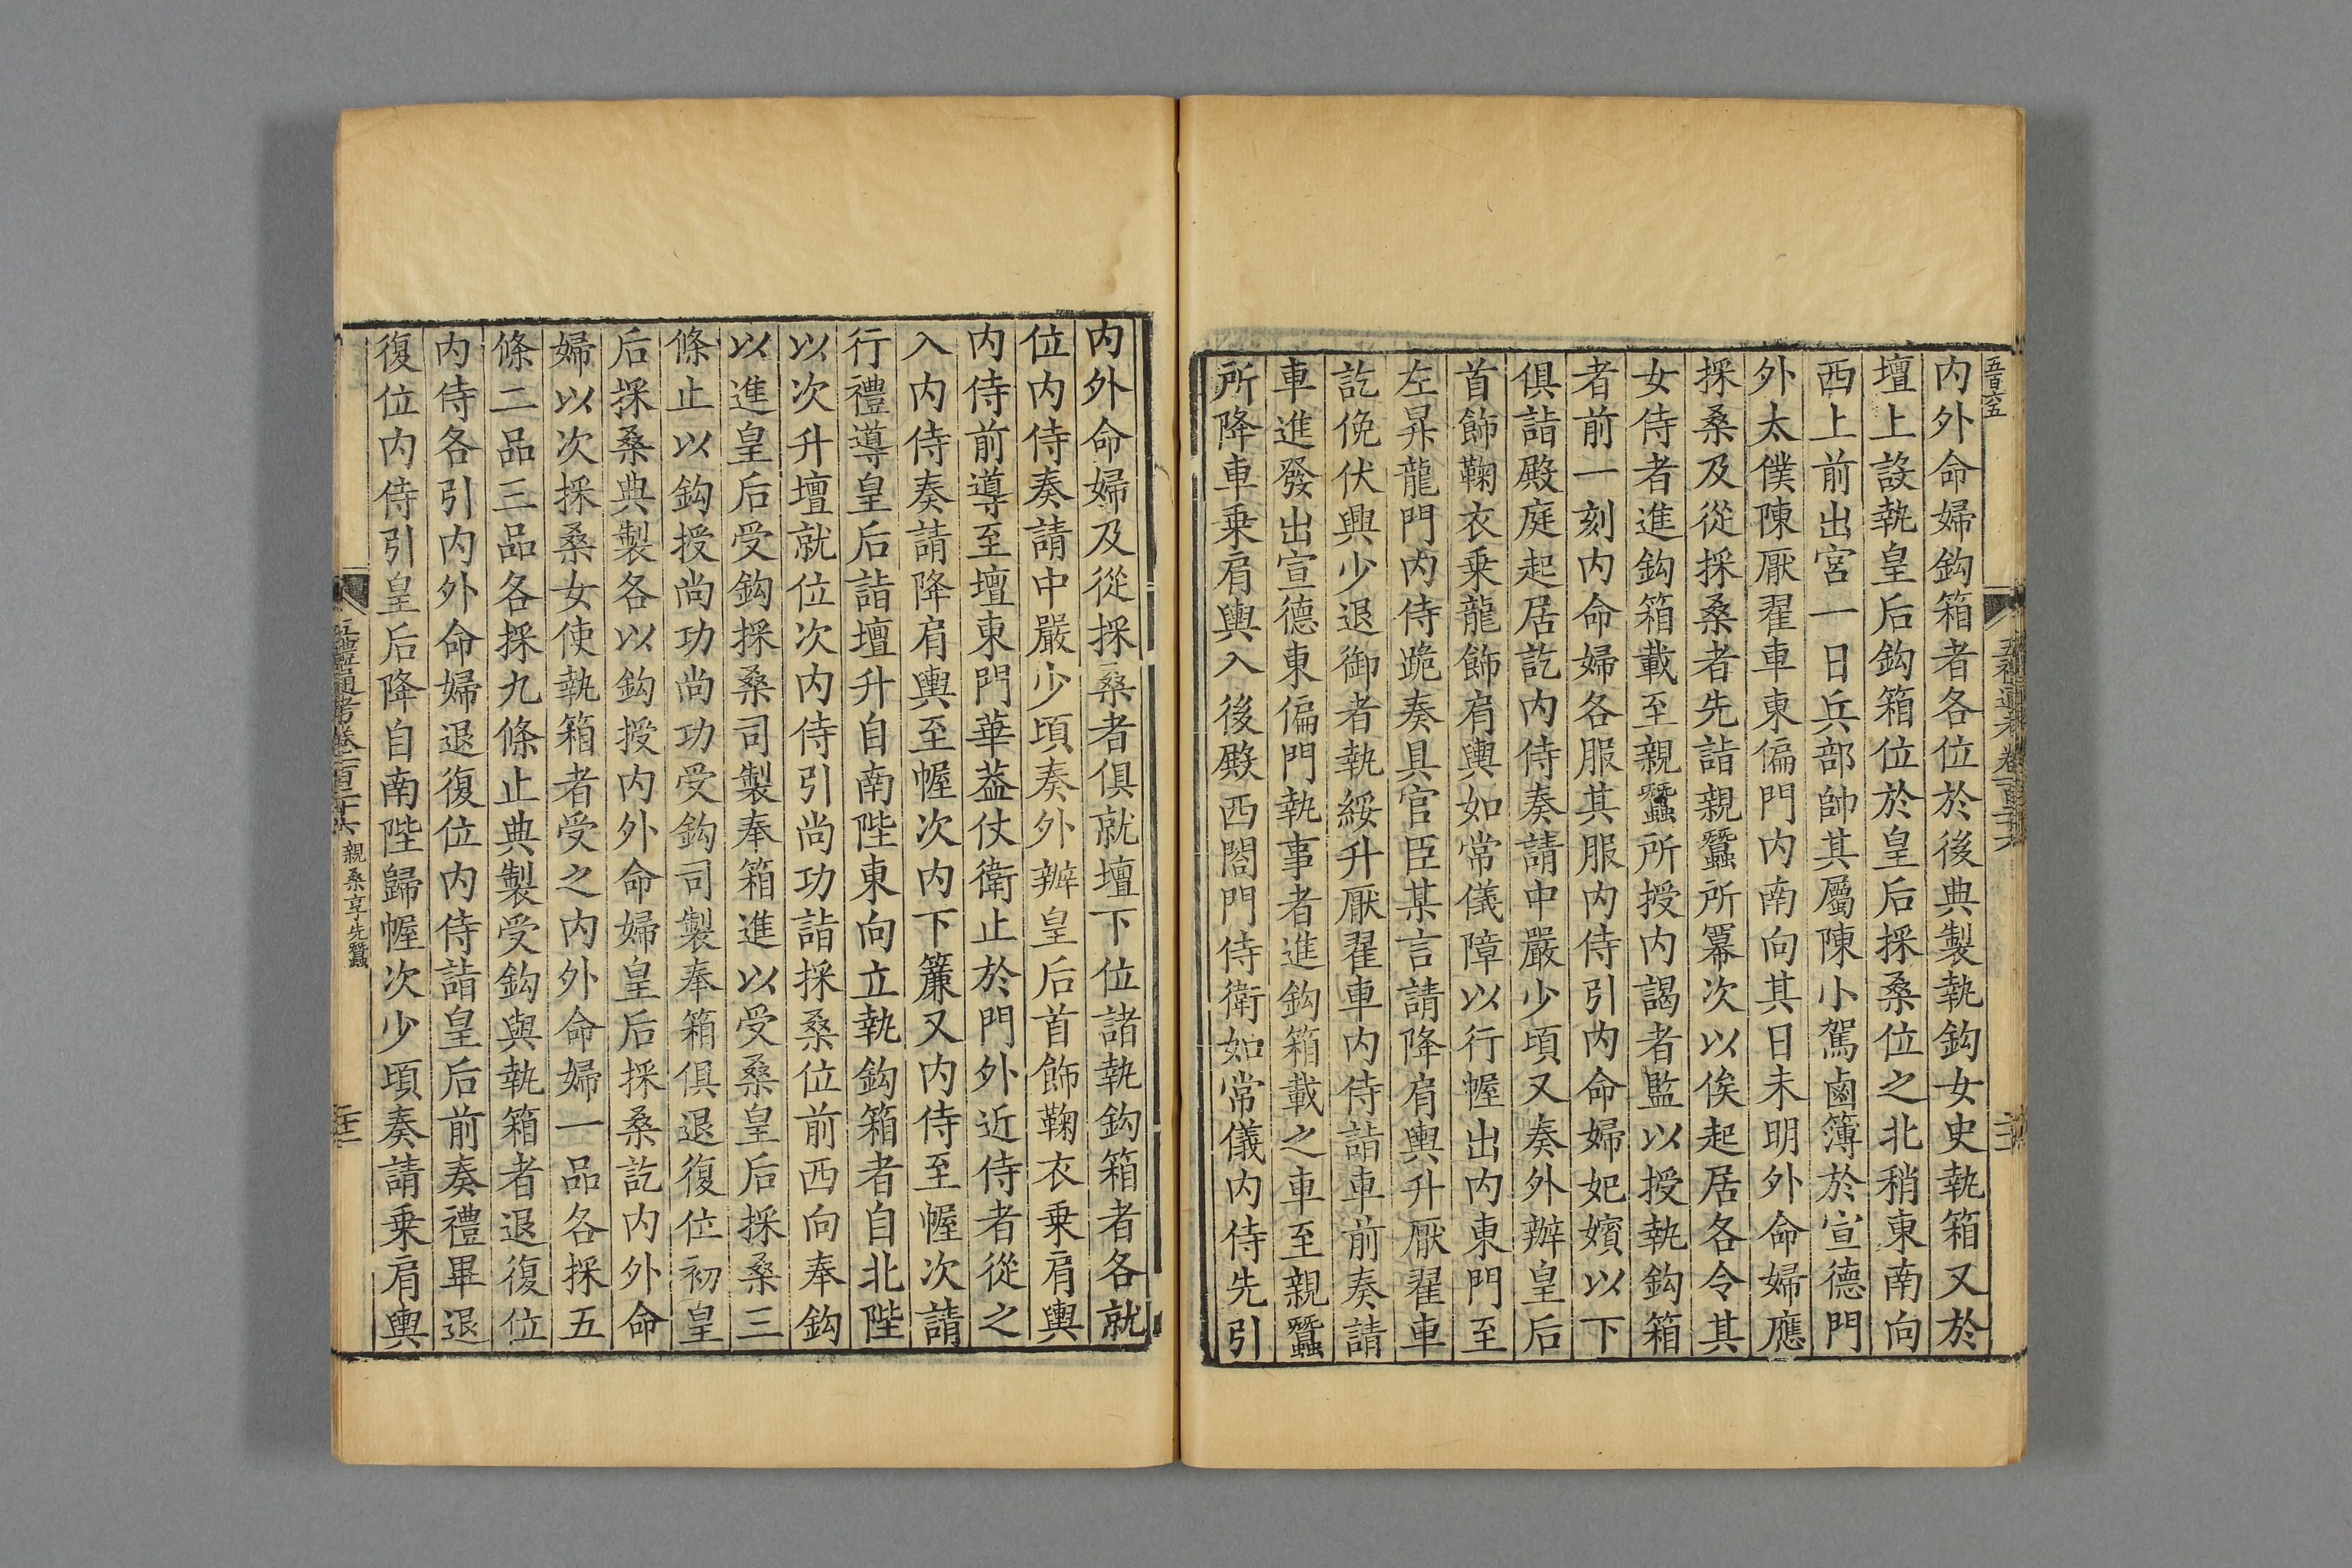 五百六五
内外命婦鈎箱者各位於後典製執鈎女史執箱又於
壇上設執皇后鈎箱位於皇后採桑位之北稍東南向
西上前出宮一日兵部帥其屬陳小駕鹵簿於宣德門
外太僕陳厭翟車東偏門内南向其日未明外命婦應
採桑及從採桑者先詣親蠶所幕次以俟起居各令其
女侍者進鈎箱載至親蠶所授内謁者監以授執鈎箱
者前一刻内命婦各服其服内侍引内命婦妃嬪以下
俱詣殿庭起居訖内侍奏請中嚴少頃又奏外辦皇后
首飾鞠衣乗龍飾肩輿如常儀障以行幄出内東門至
左昇龍門内侍跪奏具官臣某言請降肩輿升厭翟車
訖俛伏興少退御者執綏升厭翟車内侍詣車前奏請
車進發出宣德東偏門執事者進鈎箱載之車至親蠶
所降車乗肩輿入後殿西閤門侍衛如常儀内侍先引
内外命婦及從採桑者俱就壇下位諸執鈎箱者各就
位内侍奏請中嚴少頃奏外辦皇后首飾鞠衣乗肩輿
内侍前導至壇東門華葢仗衛止於門外近侍者從之
入内侍奏請降肩輿至幄次内下簾又内侍至幄次請
行禮導皇后詣壇升自南陛東向立執鈎箱者自北陛
以次升壇就位次内侍引尚功詣採桑位前西向奉鈎
以進皇后受鈎採桑司製奉箱進以受桑皇后採桑三
條止以鈎授尚功尚功受鈎司製奉箱俱退復位初皇
后採桑典製各以鈎授内外命婦皇后採桑訖内外命
婦以次採桑女使執箱者受之内外命婦一品各採五
條二品三品各採九條止典製受鈎與執箱者退復位
内侍各引内外命婦退復位内侍詣皇后前奏禮畢退
復位内侍引皇后降自南陛歸幄次少頃奏請乗肩輿
五禮通考卷一百二十六 親桑享先蠶